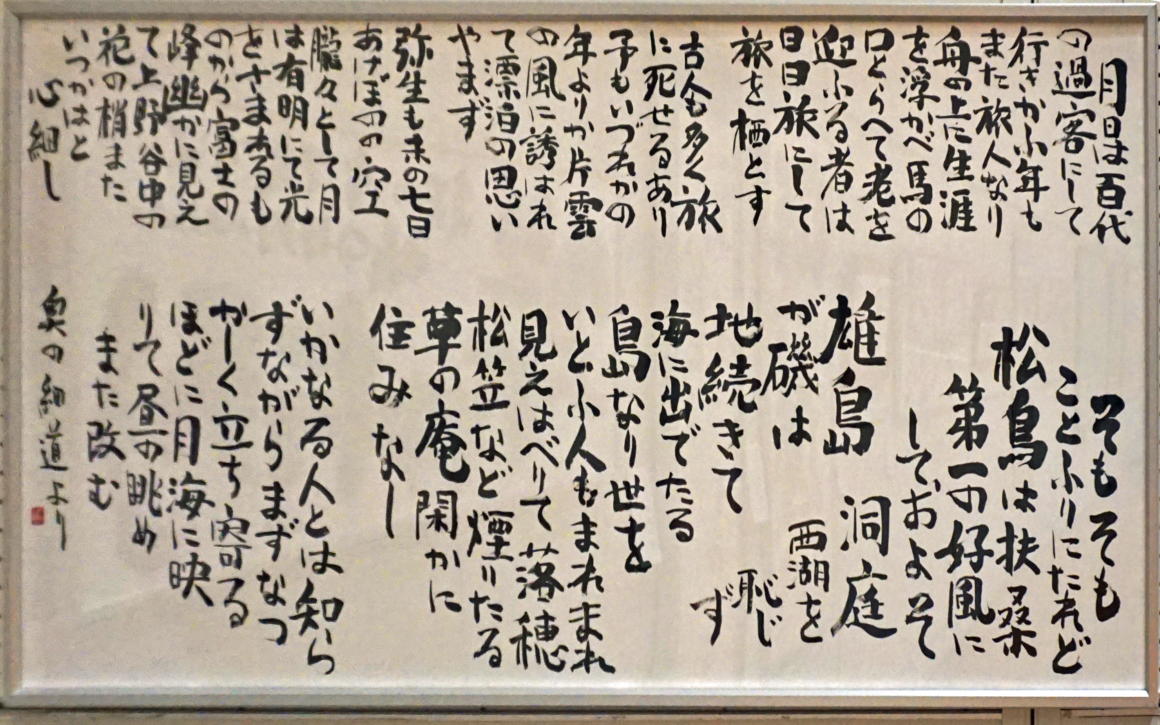 月日は百代
の過客にして
行きかふ年も
また旅人なり
舟の上に生涯
を浮かべ馬の
口とらへて老を
迎ふる者は
日日旅にして
旅を栖とす
古人も多く旅
に死せるあり
予もいづれの
年よりか片雲
の風に誘はれ
て漂泊の思い
やまず
弥生も末の七日
あけぼのの空
朧々として月
は有明にて光
をさまれるも
のから富士の
峰幽かに見え
て上野谷中の
花の梢また
いつかはと
心細し
そもそも
ことふりにたれど
松島は扶桑
第一の好風に
しておよそ
洞庭
西湖を
恥じ
ず
雄島
が磯は
地続きて
海に出でたる
島なり世を
いとふ人もまれまれ
見えはべりて落穂
松笠など煙りたる
草の庵閑かに
住みなし
いかなる人とは知ら
ずながらまずなつ
かしく立ち寄る
ほどに月海に映
りて昼の眺め
また改む
奥の細道より